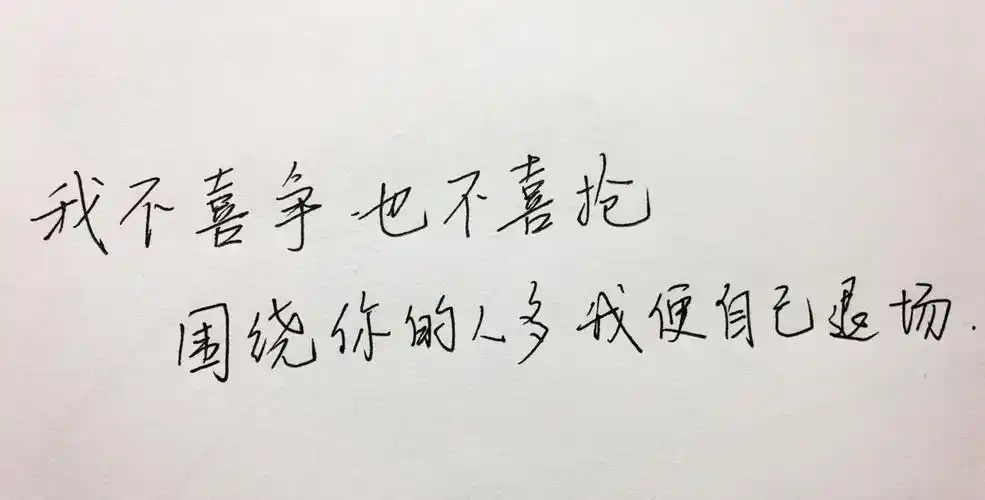 我不喜争 也不喜抢
围绕你的人多 我便自己退场.